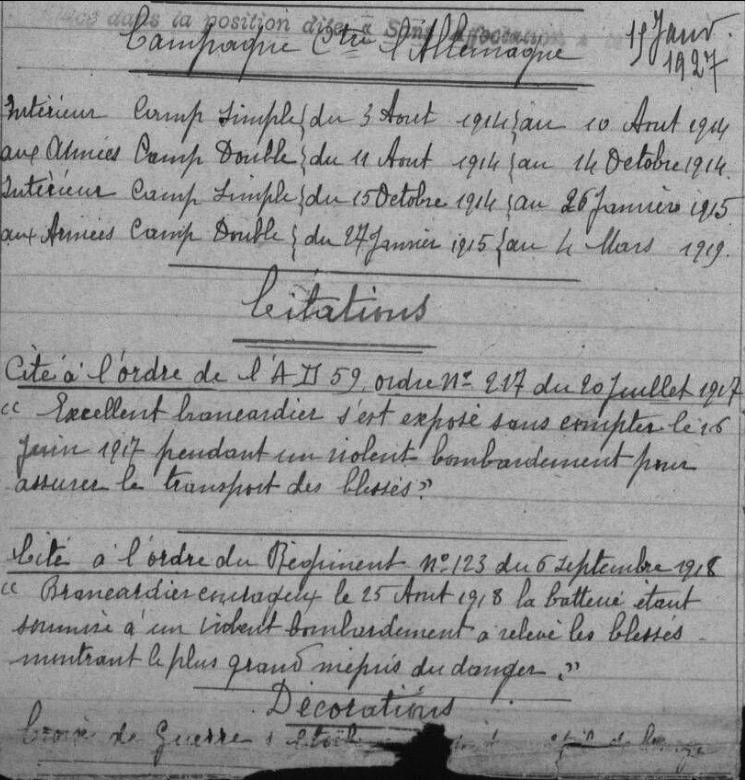 dans la position dite « Sans affectation »
Campagne Ctre l'Allemagne
15 Janv.
1927
Intérieur Camp Simple } du 3 Aout 1914 } au 10 Aout 1914
aux Armées Camp Double } du 11 Aout 1914 } au 14 Octobre 1914.
Intérieur Camp Simple } du 15 Octobre 1914 } au 26 Janvier 1915
aux Armées Camp Double } du 27 Janvier 1915 } au 4 Mars 1919.
Citations
Cité à l'ordre de l'A D 59, ordre No 217 du 20 Juillet 1917
« Excellent brancardier s'est exposé sans compter le 16
Juin 1917 pendant un violent bombardement pour
assurer le transport des blessés »
Cité à l'ordre du Régiment No 123 du 6 Septembre 1918
« Brancardier courageux le 25 Aout 1918 la batterie étant
soumise à un violent bombardement a relevé les blessés
montrant le plus grand mépris du danger. »
Décorations
Croix de Guerre